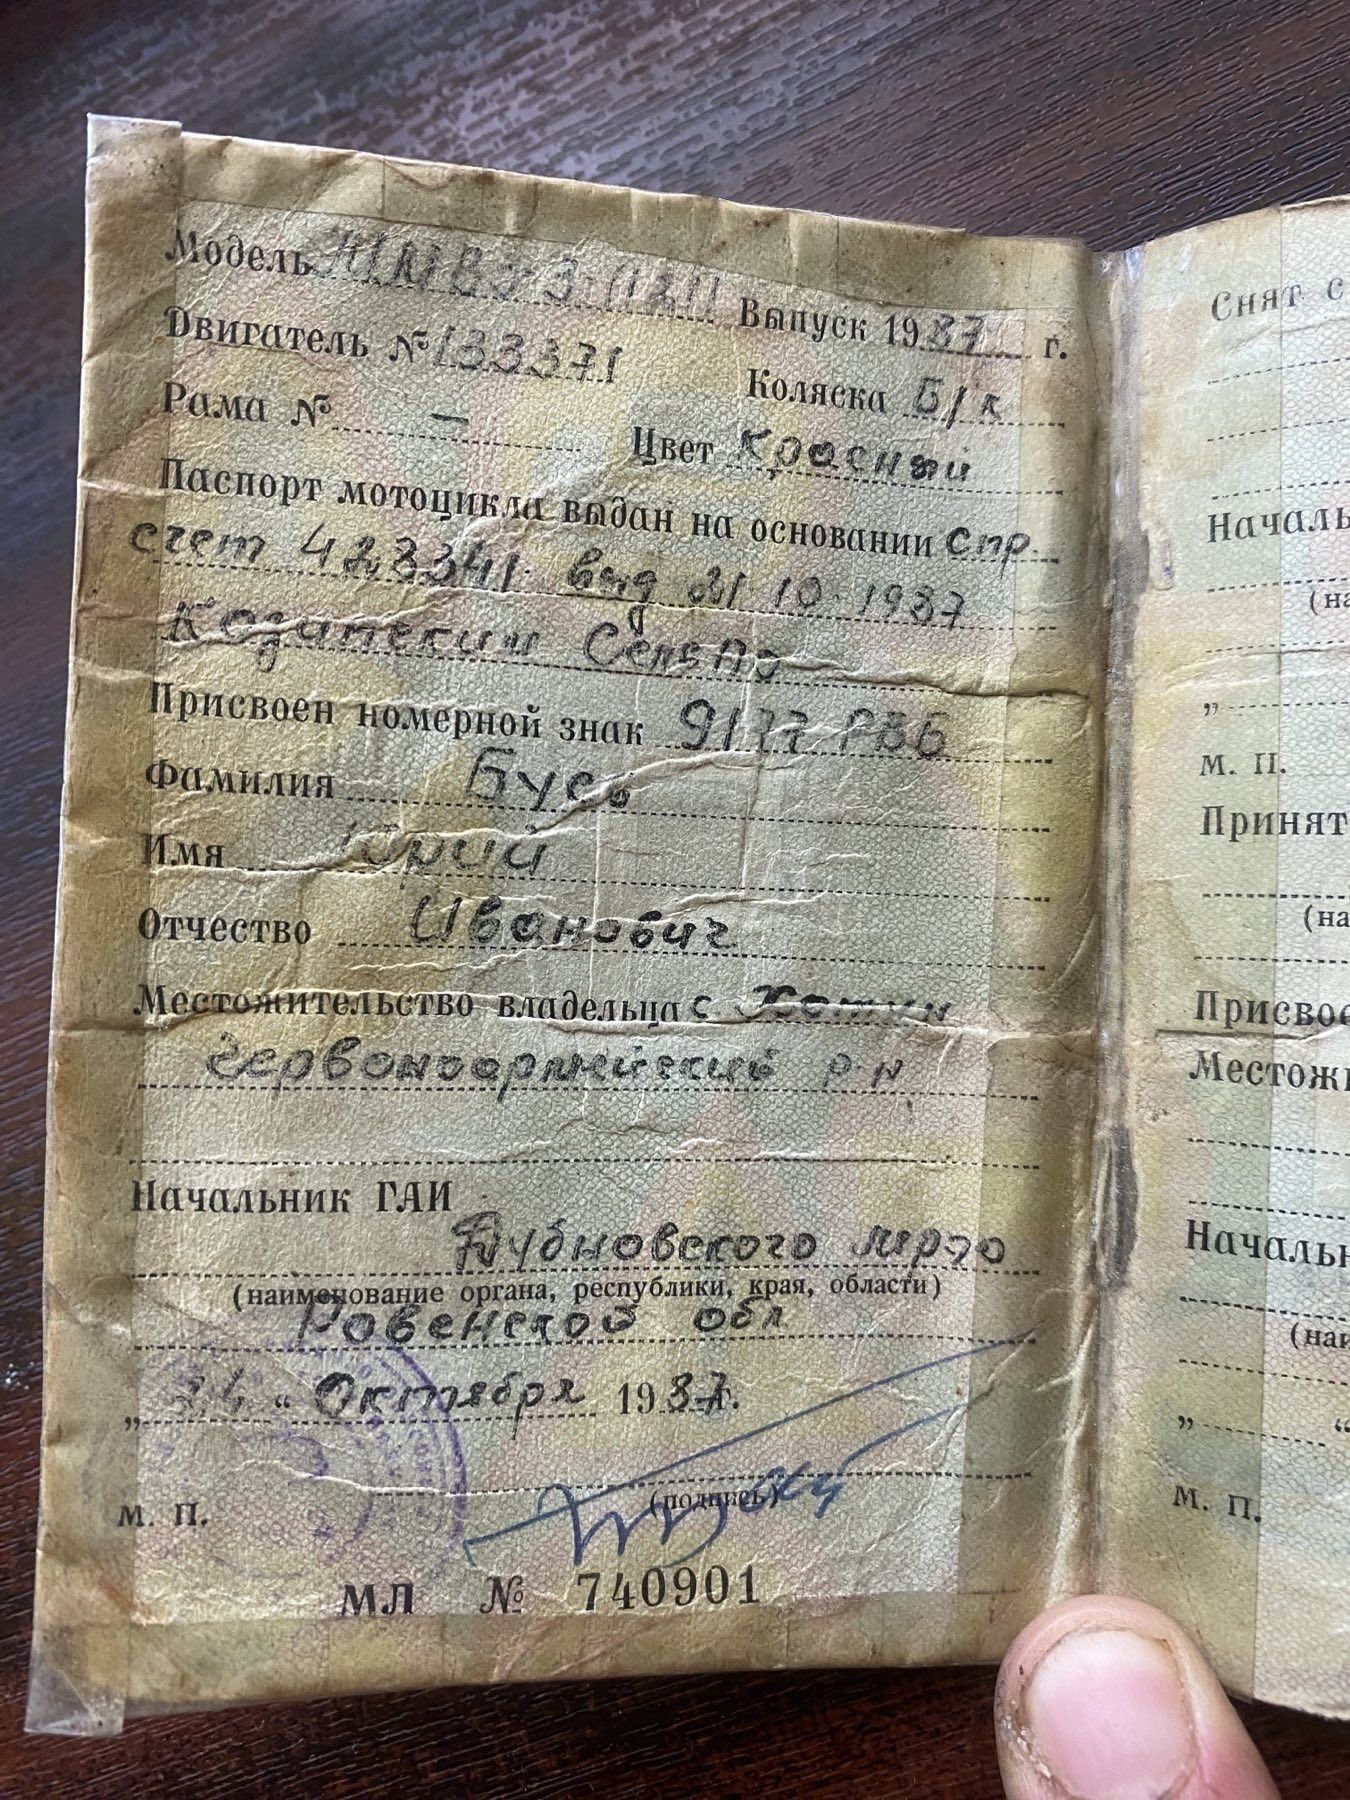 Модель ММВЗ-3.11211 Выпуск 1987 г.
Двигатель № 133371 Коляска Б/к
Рама № — Цвет Красный
Паспорт мотоцикла выдан на основании Спр.
счет 423341 выд 21.10.1987
Козинский СельПо
Присвоен номерной знак 9177 РВБ
Фамилия Бусь
Имя Юрий
Отчество Иванович
Местожительство владельца с Хотин
Червоноармейский р-н
Начальник ГАИ
Дубновского мрэо
(наименование органа, республики, края, области)
Ровенской обл
„24“ Октября 1987 г.
(подпись)
м. п.
МЛ № 740901
Снят с
Началь
(на
„
м. п.
Принят
(на
Присвое
Местожи
Начальн
(наи
„ “
м. п.